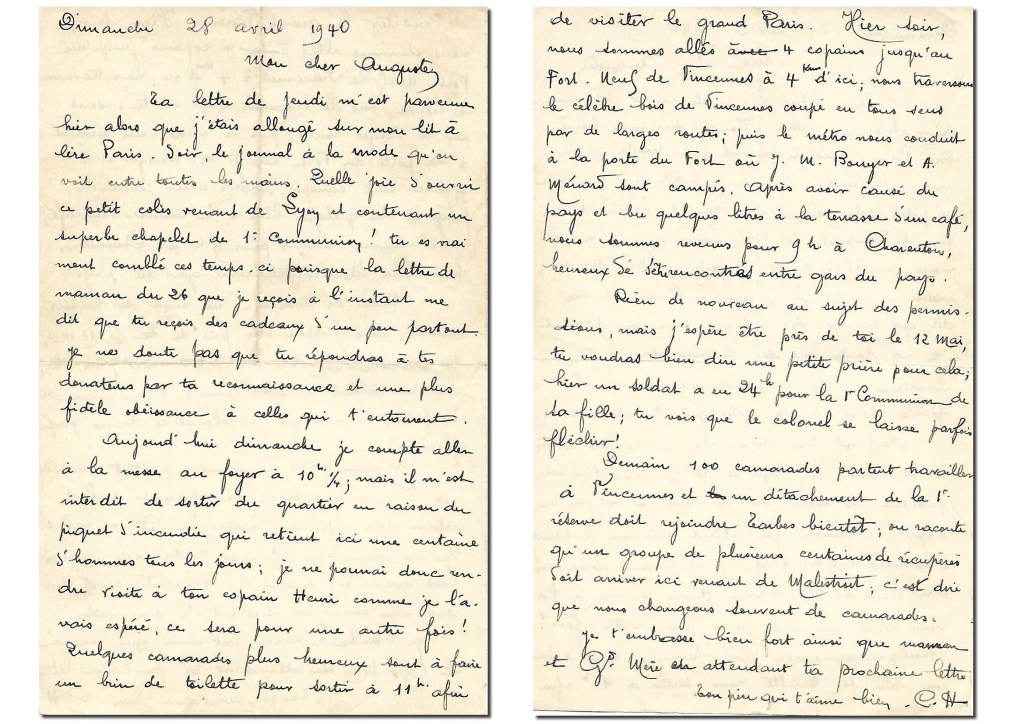 Dimanche 28 avril 1940
Mon cher Auguste,
Ta lettre de jeudi m'est parvenue
hier alors que j'étais allongé sur mon lit à
lire Paris. Soir, le journal à la mode qu'on
voit entre toutes les mains. Quelle joie d'ouvrir
ce petit colis venant de Lyon et contenant un
superbe chapelet de 1e Communion! tu es vrai
ment comblé ces temps-ci puisque la lettre de
maman du 26 que je reçois à l'instant me
dit que tu reçois des cadeaux d'un peu partout.
je ne doute pas que tu répondras à tes
donateurs par ta reconnaissance et une plus
fidèle obéissance à celles qui t'entourent.
Aujourd'hui dimanche je compte aller
à la messe au foyer à 10h ¼; mais il m'est
interdit de sortir du quartier en raison du
piquet d'incendie qui retient ici une centaine
d'hommes tous les jours; je ne pourrai donc ren-
dre visite à ton copain Henri comme je l'a-
vais espéré, ce sera pour une autre fois!
Quelques camarades plus heureux sont à faire
un brin de toilette pour sortir à 11h afin
de visiter le grand Paris. Hier soir,
nous sommes allés avec 4 copains jusqu'au
Fort. Neuf de Vincennes à 4 Km d'ici; nous traversons
le célèbre bois de Vincennes coupé en tous sens
par de larges routes; puis le métro nous conduit
à la porte du Fort où J. M. Bouyer et A.
Ménard sont campés. Après avoir causé du
pays et bu quelques litres à la terrasse d'un café,
nous sommes revenus pour 9 h à Charenton,
heureux de s'être rencontrés entre gars du pays.
Rien de nouveau au sujet des permis-
sions, mais j'espère être près de toi le 12 Mai,
tu voudras bien dire une petite prière pour cela;
hier un soldat a eu 24h pour la 1e Communion de
sa fille; tu vois que le colonel se laisse parfois
fléchir!
Demain 100 camarades partent travailler
à Vincennes et un détachement de la 1e
réserve doit rejoindre Tarbes bientôt; on raconte
qu'un groupe de plusieurs centaines de récupérés
doit arriver ici venant de Malestroit, c'est dire
que nous changeons souvent de camarades.
je t'embrasse bien fort ainsi que maman
et Gd. Mère en attendant ta prochaine lettre
Ton père qui t'aime bien. C. H